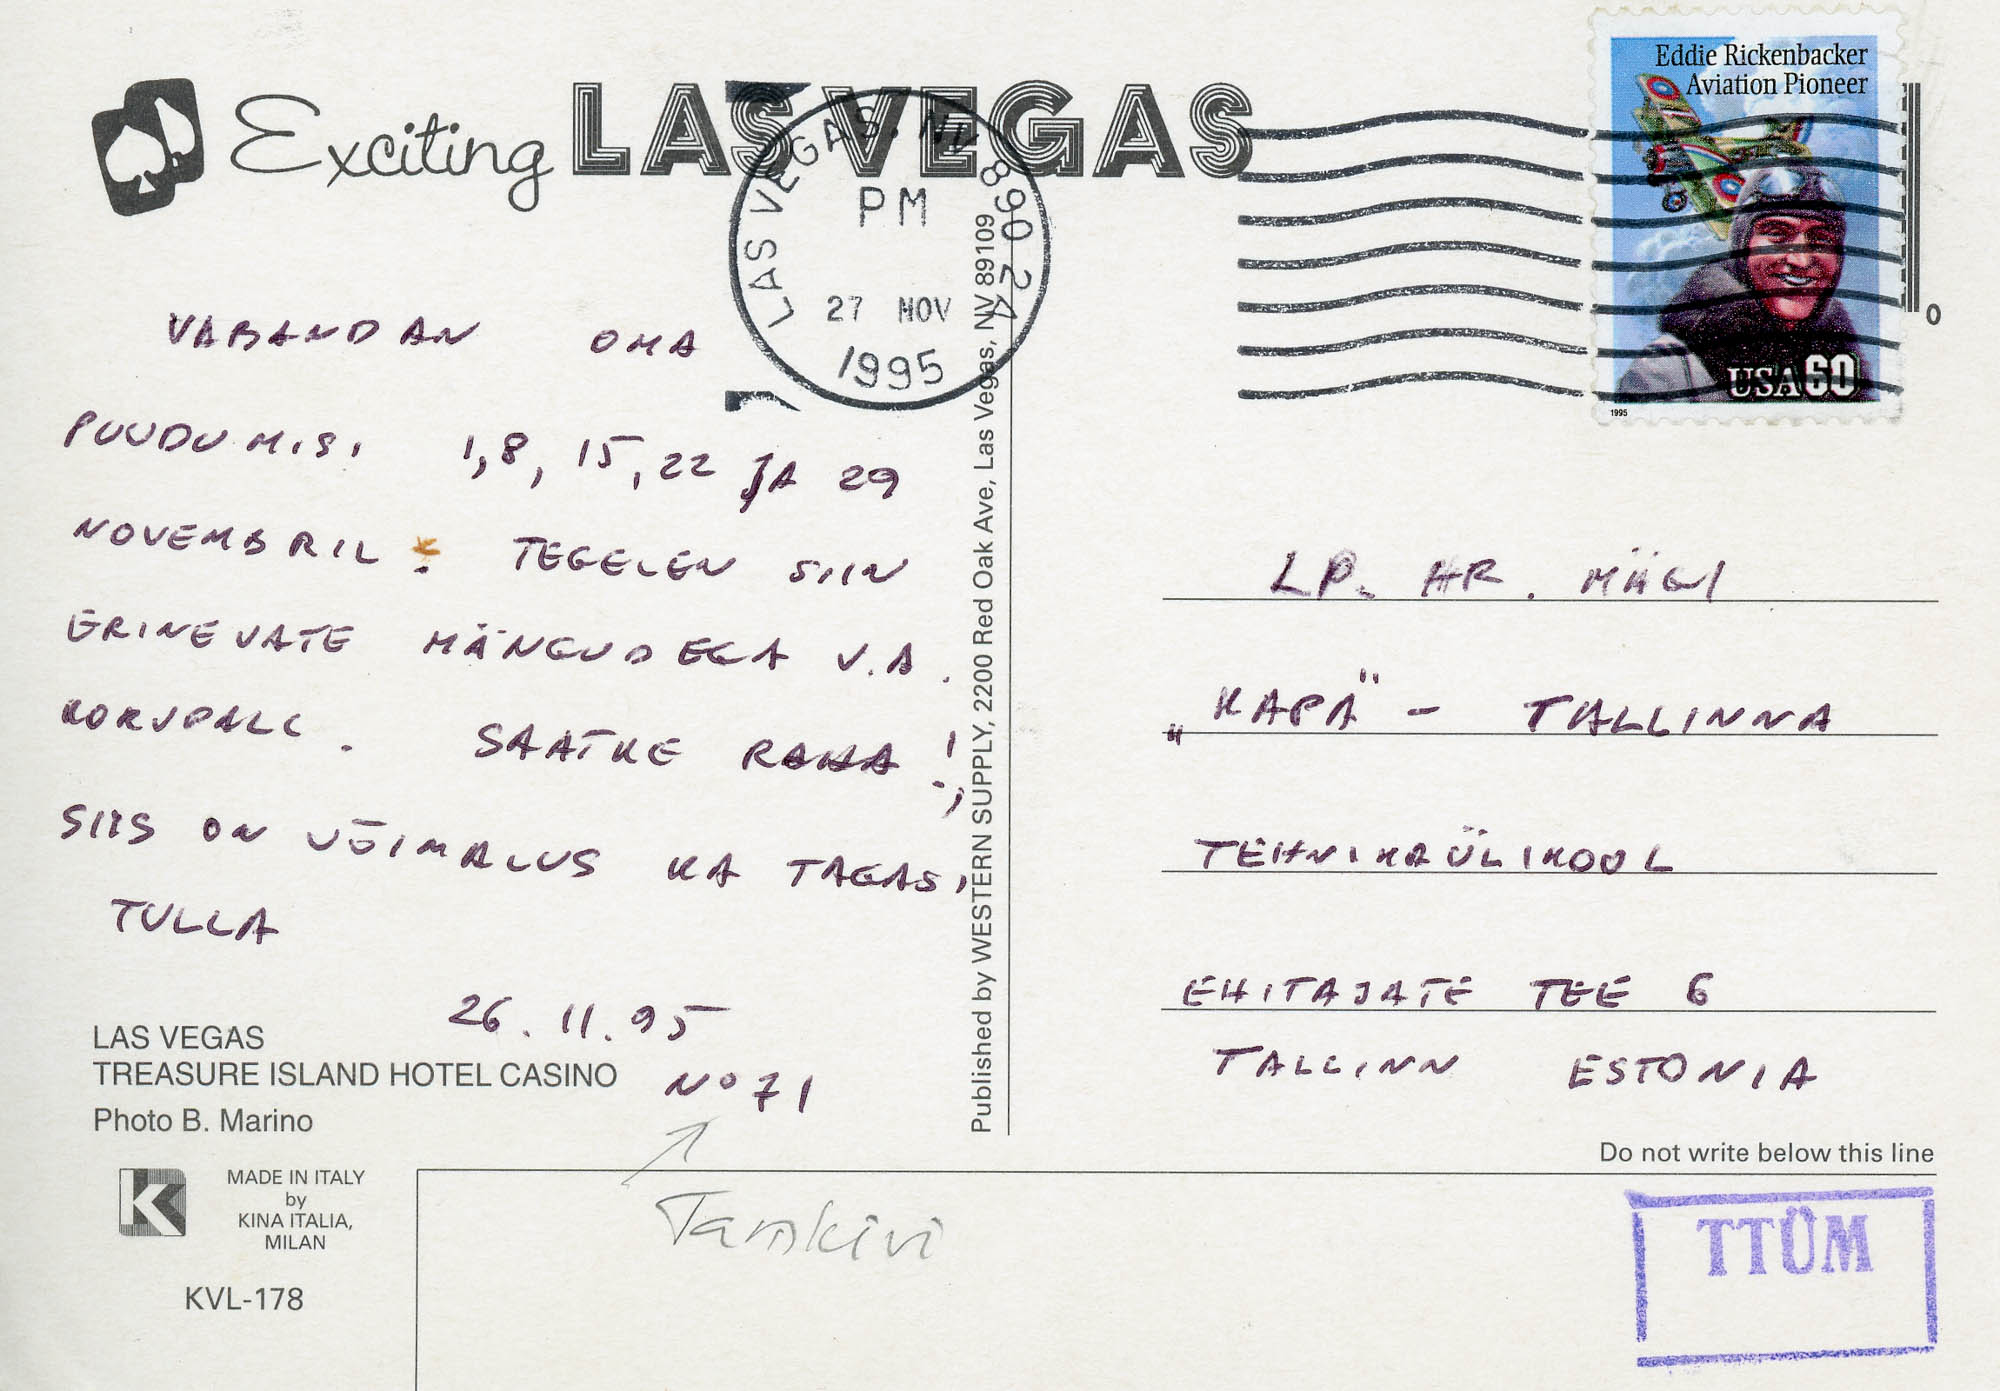 Exciting LAS VEGAS
LAS VEGAS, NV 890 24
PM
27 NOV
1995
Eddie Rickenbacker
Aviation Pioneer
USA 60
1995
VABANDAN OMA
PUUDUMISI 1,8, 15, 22 JA 29
NOVEMBRIL. TEGELEN SIIN
ERINEVATE MÄNGUDEGA V.A.
KORVPALL. SAATKE RAHA!,
SIIS ON VÕIMALUS KA TAGASI
TULLA
26.11.95
No 71
Tamkivi
LAS VEGAS
TREASURE ISLAND HOTEL CASINO
Photo B. Marino
MADE IN ITALY
by
KINA ITALIA,
MILAN
KVL-178
Published by WESTERN SUPPLY, 2200 Red Oak Ave, Las Vegas, NV 89109
0
LP. HR. MÄGI
„KAPÄ" - TALLINNA
TEHNIKAÜLIKOOL
EHITAJATE TEE 6
TALLINN ESTONIA
Do not write below this line
TTÜM